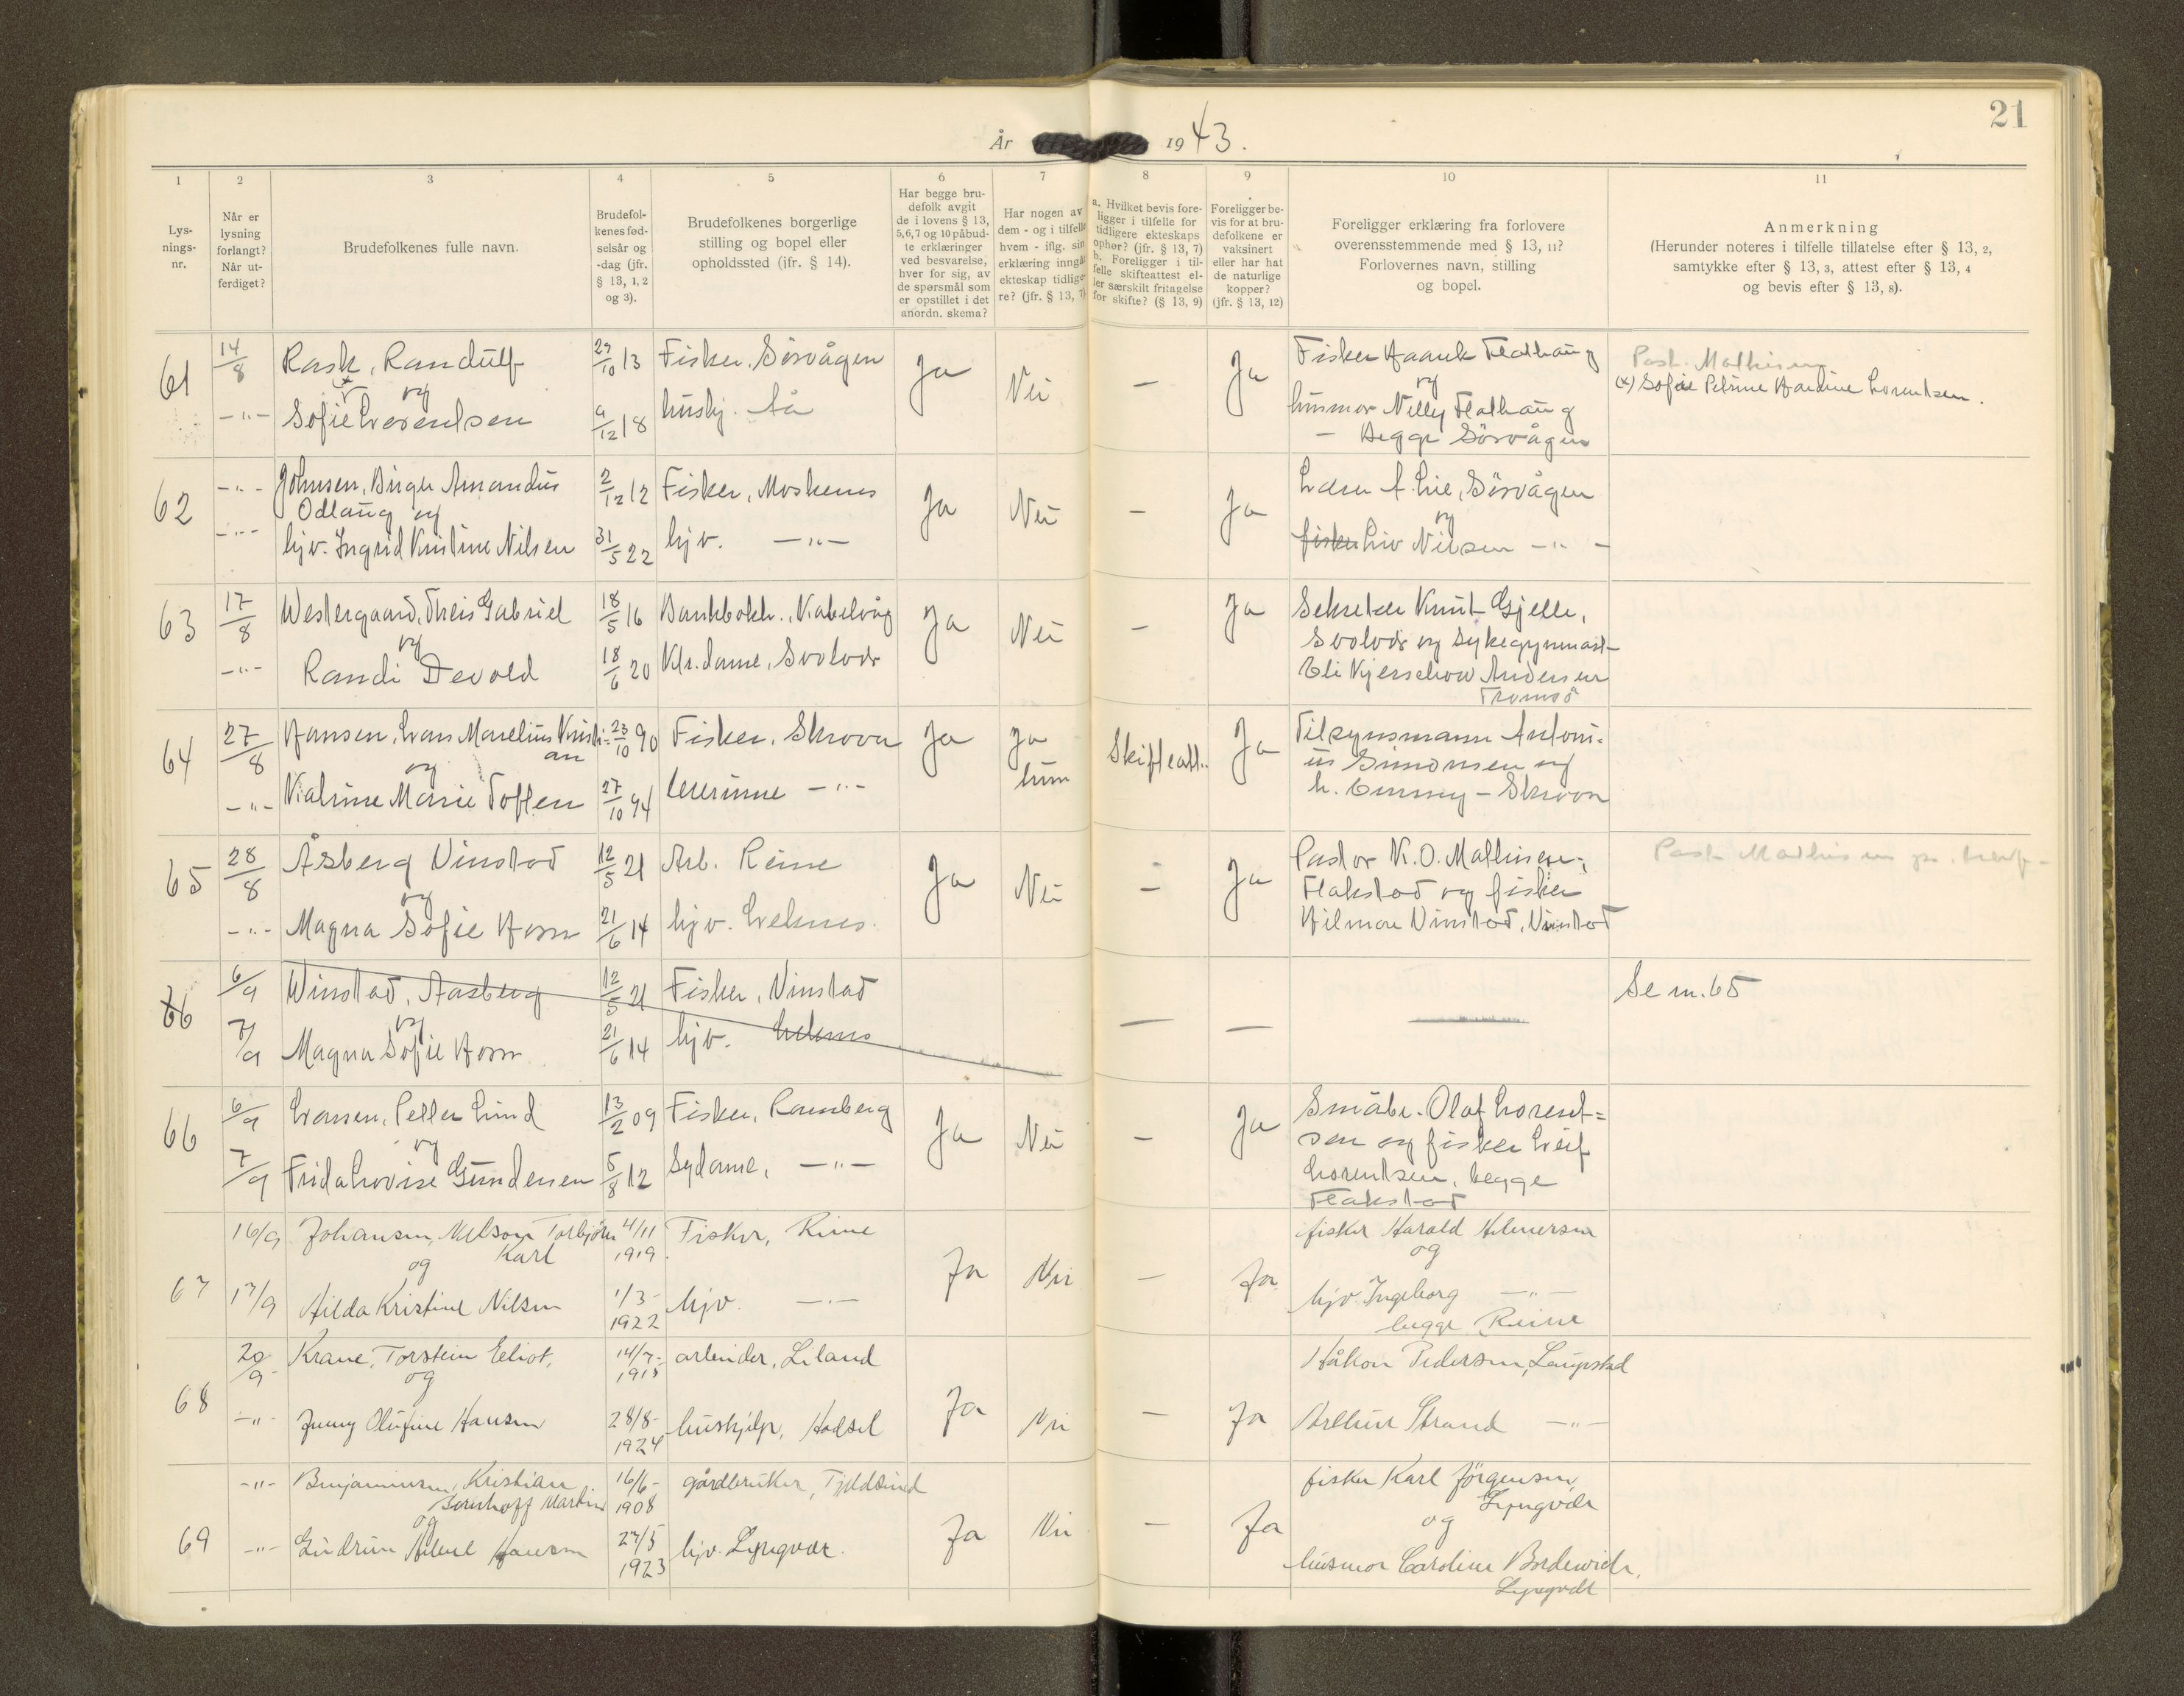 21
År 1943.
1 2 3 4 5 6 7 8 9 10 11
Lys-
nings-
nr.
Når er
lysning
forlangt?
Når ut-
ferdiget?
Brudefolkenes fulle navn.
Brudefol-
kenes fød-
selsår og
-dag (jfr.
§ 13, 1, 2
og 3).
Brudefolkenes borgerlige
stilling og bopel eller
opholdssted (jfr. § 14).
Har begge bru-
defolk avgit
de i lovens § 13,
5,6,7 og 10 påbud-
te erklæringer
ved besvarelse,
hver for sig, av
de spørsmål som
er opstillet i det
anordn. skema?
Har nogen av
dem - og i tilfelle
hvem - iflg. sin
erklæring inngåt
ekteskap tidlige-
re? (jfr. § 13, 7)
a. Hvilket bevis fore-
ligger i tilfelle for
tidligere ekteskaps
ophør? (jfr. § 13, 7)
b. Foreligger i til-
felle skifteattest el-
ler særskilt fritagelse
for skifte? (§ 13, 9)
Foreligger be-
vis for at bru-
defolkene er
vaksinert
eller har hat
de naturlige
kopper?
(jfr. § 13, 12)
Foreligger erklæring fra forlovere
overensstemmende med § 13, 11?
Forlovernes navn, stilling
og bopel.
Anmerkning
(Herunder noteres i tilfelle tillatelse efter § 13, 2,
samtykke efter § 13, 3, attest efter § 13, 4
og bevis efter § 13, 8).
61 14/8 Rask, Randulf 29/10 13 Fisker, Sörvågen Ja Nei — Ja
og
—"— Sofie Lorentsen 9/12 18 hushj. Åa
Fisker Haakk Flathaug
og
husmor Nelly Flathaug
— Begge Sörvågen
Past. Mathisen
(x) Sofie Petrine Hardine Lorentsen.
62 —"— Johnsen, Birger Amandus 2/12 12 Fisker, Moskenes Ja Nei — Ja
Odlaug og
—"— hjv. Ingrid Kristine Nilsen 31/5 22 hjv. —"—
Lærer A. Lie, Sörvågen
og
fisker Liv Nilsen —"—
63 17/8 Westergaard, Theis Gabriel 18/5 16 Bankbokh., Kabelvåg Ja Nei — Ja
og
—"— Randi Devold 18/6 20 Ktr.dame, Svolvær
Sekretær Knut Gjelle,
Svolvær og sykegymnast
Eli Kjerschow Andersen
Tromsö
64 27/8 Hansen, Evan Marelius Kristi- 23/10 90 Fisker, Skrova Ja Ja Skifteatt. Ja
an
og hun
—"— Katrine Marie Toften 27/10 94 lærerinne —"—
Tilsynsmann Antoni-
us Simonsen og
h. Emmy — Skrova
65 28/8 Åsberg Vinstad 12/5 21 Arb. Reine Ja Nei — Ja
og
—"— Magna Sofie Horn 21/6 14 hjv. Leknes.
Pastor K.O. Mathisen,
Flakstad og fisker
Hilmar Vinstad, Vinstad
66 6/9 Winstad, Aasberg 12/5 21 Fisker, Vinstad — — —
og
7/9 Magna Sofie Horn 21/6 14 hjv. Leknes
Se nr. 65
66 6/9 Larsen, Petter Lind 13/2 09 Fisker, Ramberg Ja Nei — Ja
og
7/9 Frida Lovise Gundersen 5/8 12 Sydame, —"—
Småbr. Olaf Lorent-
sen og fisker Leif
Lorentsen, begge
Flakstad
67 16/9 Johansen, Nelson Torbjörn 4/11 Fisker, Reine
Karl 1919.
og Ja Nei — Ja
17/9 Hilda Kristine Nilsen 1/3- hjv. —"—
1922
fisker Harald Hilmersen
og
hjv. Ingeborg —"—
begge Reine
68 20/9 Krane, Torstein Eliot, 14/7- arbeider, Liland
og 1915
Ja Nei — Ja
—"— Jenny Olufine Hansen 28/8- hushjelp, Hadsel
1924
Håkon Pedersen, Laupstad
Arthur Strand —"—
69 —"— Benjaminsen, Kristian 16/6- gårdbruker, Tjeldsund
Bernhoff Martin 1908
og Ja Nei — Ja
—"— Gudrun Helene Hansen 27/5 hjv. Lyngvær.
1923
fisker Karl Jörgensen,
Lyngvær
og
husmor Caroline Bordewich,
Lyngvær